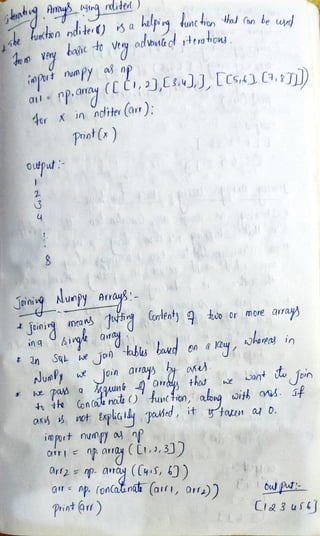 Iterating Arrays using nditer()
* The function nditer() is a helping function that can be used
from very basic to very advanced iterations.
import numpy as np
arr = np.array([[[1,2],[3,4],], [[5,6], [7,8]]])
for x in nditer(arr):
print(x)
output:-
1
2
3
4
⋮
8
Joining Numpy Arrays:-
* joining means putting contents of two or more arrays
in a single array.
* In SQL we join tables based on a key, whereas in
NumPy we join arrays by axes
* we pass a sequence of arrays that we want to join
to the concatenate() function, along with axis. If
axis is not explicitly passed, it is taken as 0.
import numpy as np
arr1 = np.array([1,2,3])
arr2 = np.array([4,5,6])
arr = np.concatinate(arr1, arr2))
print(arr)
output:-
[1 2 3 4 5 6]